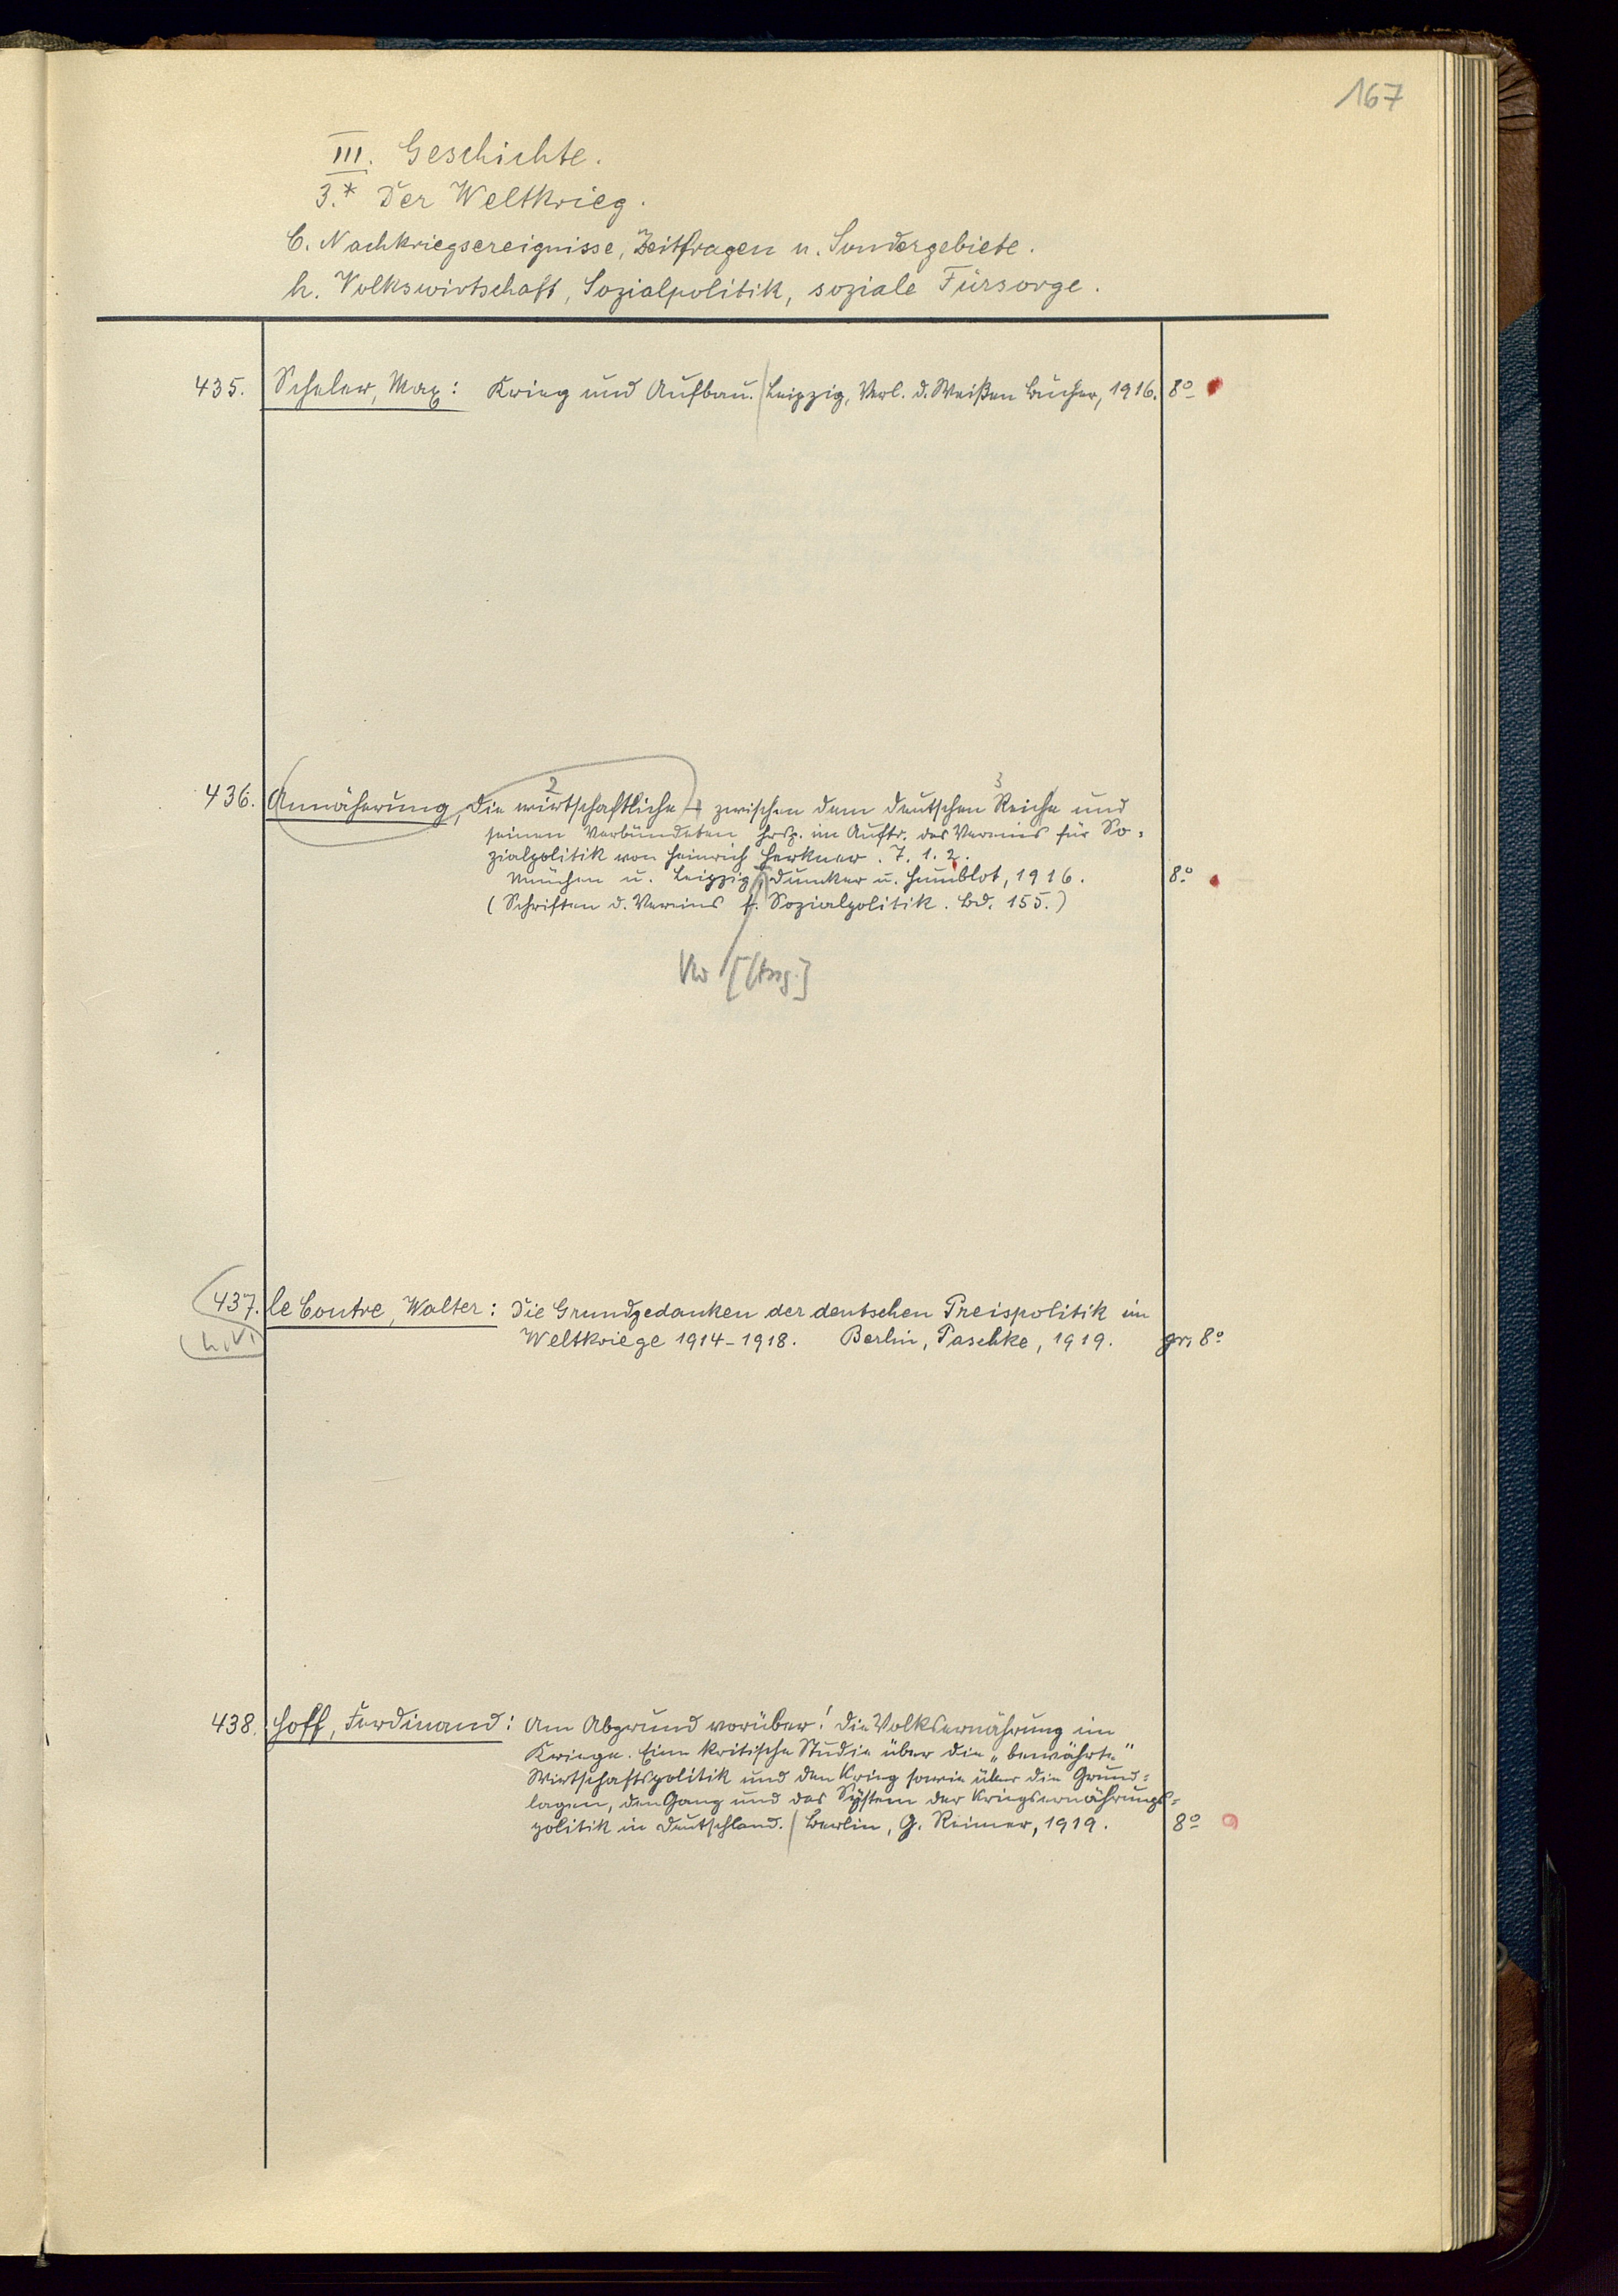 167
III. Geschichte.
3.* Der Weltkrieg.
C. Nachkriegsereignisse, Zeitfragen u. Sondergebiete.
h. Volkswirtschaft, Sozialpolitik, soziale Fürsorge.
435. Scheler, Max: Krieg und Aufbau. Leipzig, Verl. d. Weißen Bücher, 1916. 8º
2 3
436. Annäherung, Die wirtschaftliche, zwischen dem deutschen Reiche und
seinen Verbündeten hrsg. im Auftr. des Vereins für So=
zialpolitik von Heinrich Herkner. T. 1. 2.
München u. Leipzig, Duncker u. Humblot, 1916. 8º
(Schriften d. Vereins f. Sozialpolitik. Bd. 155.)
437. le Coutre, Walter: Die Grundgedanken der deutschen Preispolitik im
Weltkriege 1914-1918. Berlin, Paschke, 1919. gr. 8º
438. Hoff, Ferdinand: Am Abgrund vorüber! Die Volksernährung im
Kriege. Eine kritische Studie über die „bewährte"
Wirtschaftspolitik und den Krieg sowie über die Grund=
lagen, den Gang und das System der Kriegsernährungs=
politik in Deutschland. Berlin, G. Reimer, 1919. 8º